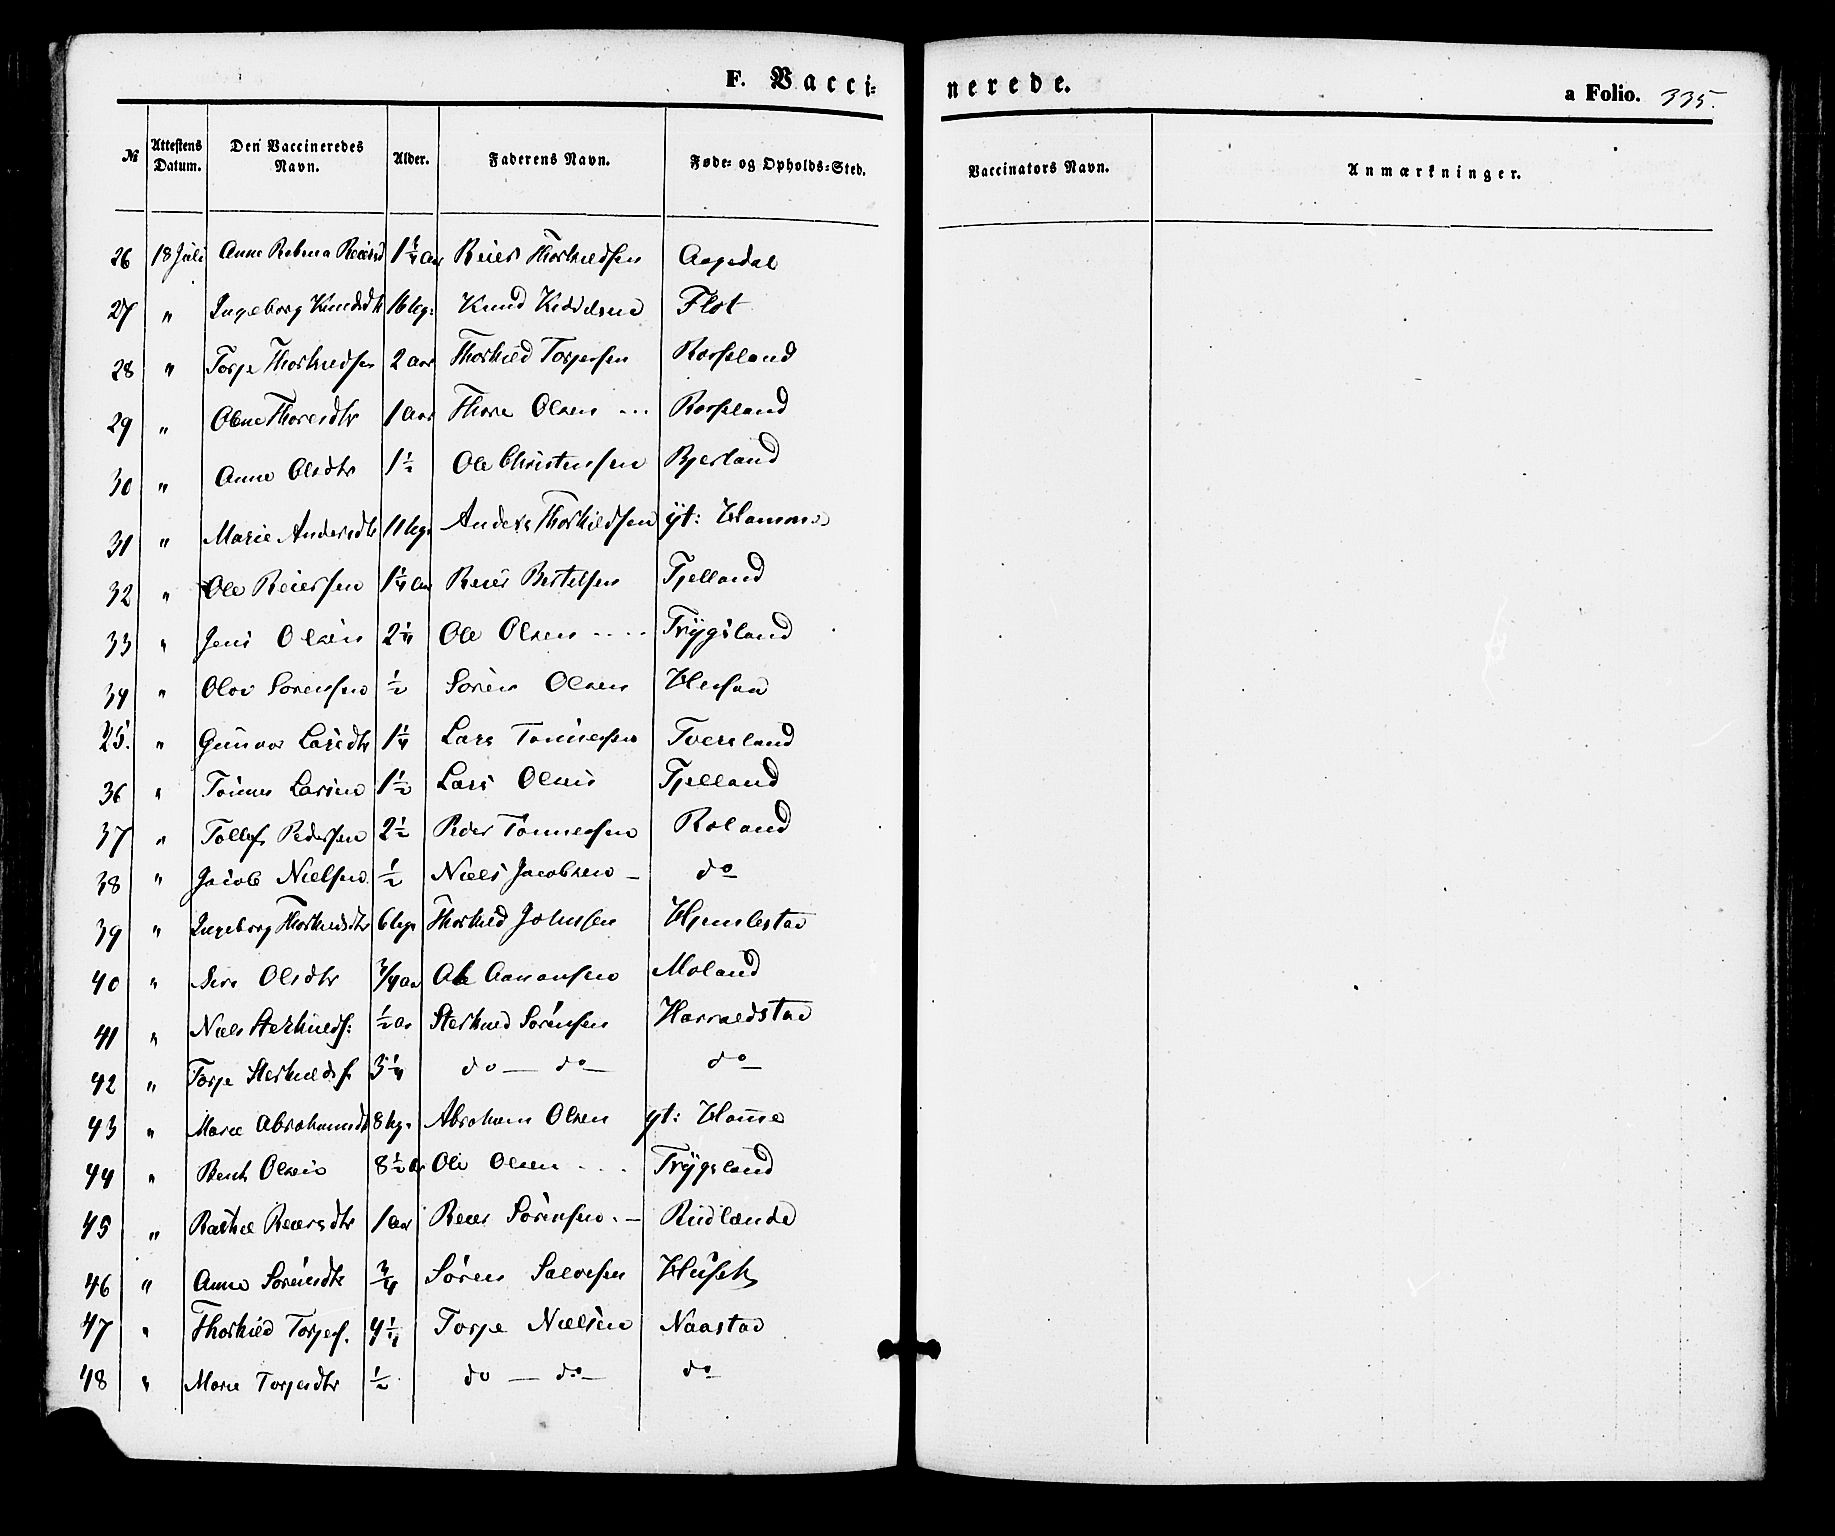 F. Vacci-
nerede.
a Folio. 335.
№ Attestens Datum. Den Vaccineredes Navn. Alder. Faderens Navn. Føde- og Opholds-Sted. Vaccinators Navn. Anmærkninger.
26 18 Juli Anne Rebena 1¼ aar Reier Thorkildsen Aagedal
27 " Ingeborg Knudsdtr 16 Ug: Knud Kiddelsen Flot
28 " Torje Thorkildsen 2 aar Thorkild Torjersen Rosseland
29 " Olene Thoresdtr 1 aar Thore Olsen ... Rosseland
30 " Anne Olsdtr 1½ Ole Christensen Bjerland
31 " Marie Andersdtr 11 Ug: Anders Thorkildsen yt: Hamme
32 " Ole Reiersen 1¼ aar Reier Bertelsen Fjelland
33 " Jens Olsen 2¼ Ole Olsen .... Trygsland
34 " Olov Sørensen ½ Søren Olsen
35. " Gunvor Larsdtr 1¼ Lars Tønnesen Tversland
36 " Tønnes Larsen 1½ Lars Olsen Fjelland
37 " Tollef Pedersen 2½ Peder Tønnesen Roland
38 " Jacob Nielsen ½ Niels Jacobsen – do
39 " Ingeborg Thorkildsdtr 6 Ug: Thorkild Johnsen Hjemlestad
40 " Siri Olsdtr ¾ aar Ole Aamansen Moland
41 " Niels Sterkuldf: ½ a Sterkuld Sørensen Harraldstad
42 " Torje Sterkuldsf. 3¼ do — do — do —
43 " Marie Abrahamsdt 8 Ug. Abraham Olsen yt: Ham̅e
44 " Bent Olsen 8½ ar Ole Olsen .... Trygsland
45 " Rachel Reiersdtr 1 aar Reier Sørensen. – Rudlende
46 " Anne Sørensdtr ¾ Søren Salvesen
47 " Thorkild Torjesf. 4¼ Torje Nielsen Naastad
48 " Marie Torjesdtr ½ do — do — do